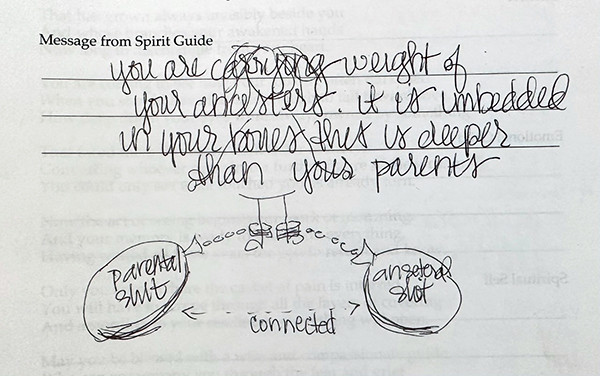 Message from Spirit Guide
you are carrying weight of
your ancesters. it is imbedded
in your bones this is deeper
than your parents
parental
shit
anseteral
shit
connected